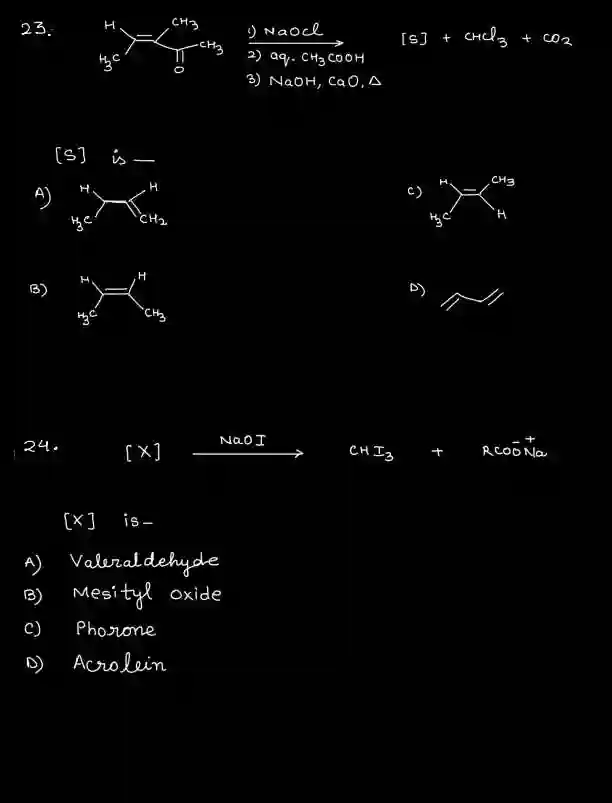 23.
H CH3
H3C O CH3
1) NaOCl
2) aq. CH3COOH
3) NaOH, CaO, Δ
[S] + CHCl3 + CO2
[S] is —
A) H H
H3C CH2
C) H CH3
H3C H
B) H H
H3C CH3
D)
24. [X] NaOI CHI3 + RCOO⁻Na⁺
[X] is–
A) Valeraldehyde
B) Mesityl oxide
C) Phorone
D) Acrolein